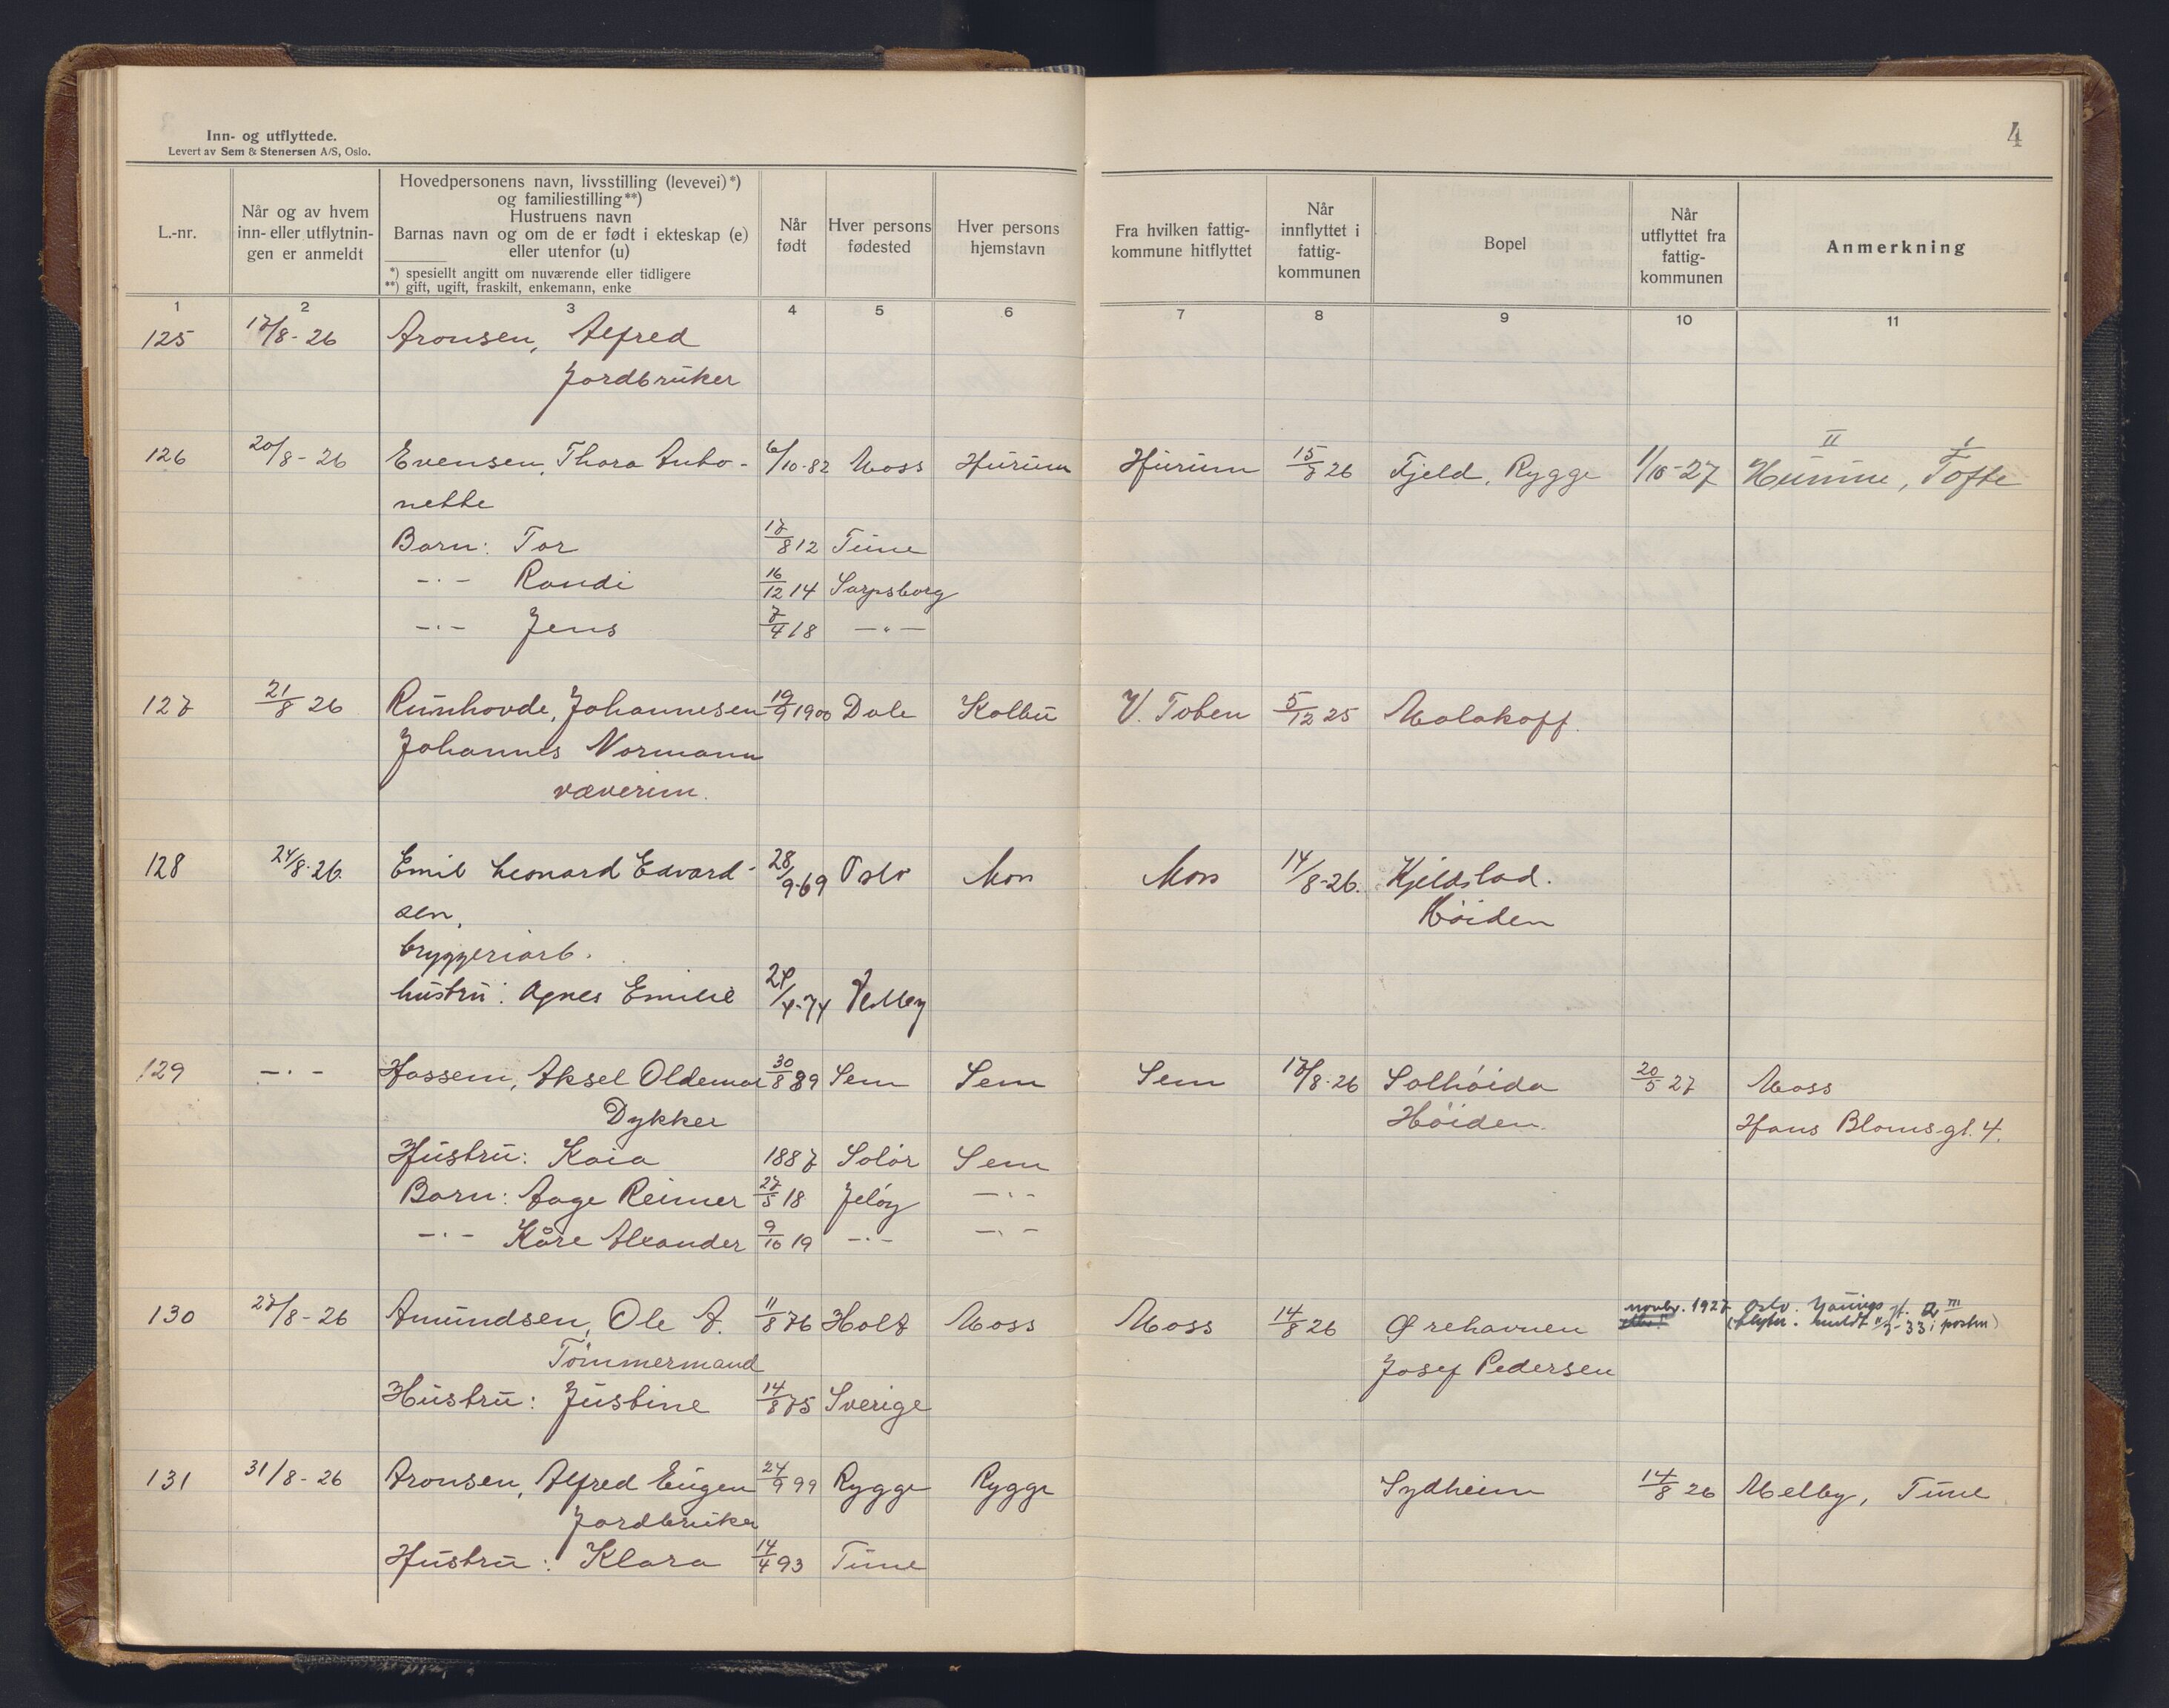 Inn- og utflyttede.
Levert av Sem & Stenersen A/S, Oslo.
4
L.-nr.
Når og av hvem
inn- eller utflytnin-
gen er anmeldt
Hovedpersonens navn, livsstilling (levevei)*)
og familiestilling**)
Hustruens navn
Barnas navn og om de er født i ekteskap (e)
eller utenfor (u)
*) spesiellt angitt om nuværende eller tidligere
**) gift, ugift, fraskilt, enkemann, enke
Når
født
Hver persons
fødested
Hver persons
hjemstavn
Fra hvilken fattig-
kommune hitflyttet
Når
innflyttet i
fattig-
kommunen
Bopel
Når
utflyttet fra
fattig-
kommunen
Anmerkning
1 2 3 4 5 6 7 8 9 10 11
125 17/8-26 Aronsen, Alfred
Jordbruker
126 20/8-26 Evensen, Thora Anto- 6/10-82 Moss Hurum Hurum 15/ 26 Fjeld, Rygge 1/10-27 Tofte
nette
Barn: Tor 17/8 12 Tune
-·- Randi 16/12 14 Sarpsborg
-·- Jens 7/4 18 -"-
127 21/8 26 Rumhovde, Johannesen 19/9 1900 Dale Kolbu V. Toten 5/12 25 Malakoff.
Johannes Normann
væverim.
128 24/8-26. Emil Leonard Edvard- 28/9-69 Oslo Moss Moss 14/8-26. Kjeldstad.
sen,
Høiden
bryggeriarb.
hustru: Agnes Emilie /4-74
129 -·- Hassem, Aksel Oldemar 30/8 89 Sem Sem Sem 17/8-26 Solhøida 20/5 27 Moss
Dykker Høiden Hans Blomsgt. 4.
Hustru: Kaia 1887 Solør Sem
Barn: Aage Reimer 27/5 18 Jeløy -·-
-·- Kåre Alexander 9/10 19 -·- -·-
130 27/8-26 Amundsen, Ole A. 11/8 76 Holt Moss Moss 14/8 26 Ørehavnen novbr. 1927 Oslo.
Tømmermand Josef Pedersen
Hustru: Justine 14/8 75 Sverige
131 31/8-26 Aronsen, Alfred Eugen 24/9 99 Rygge Rygge Sydheim 14/8 26 Melby, Tune
Jordbruker
Hustru: Klara 14/4 93 Tune